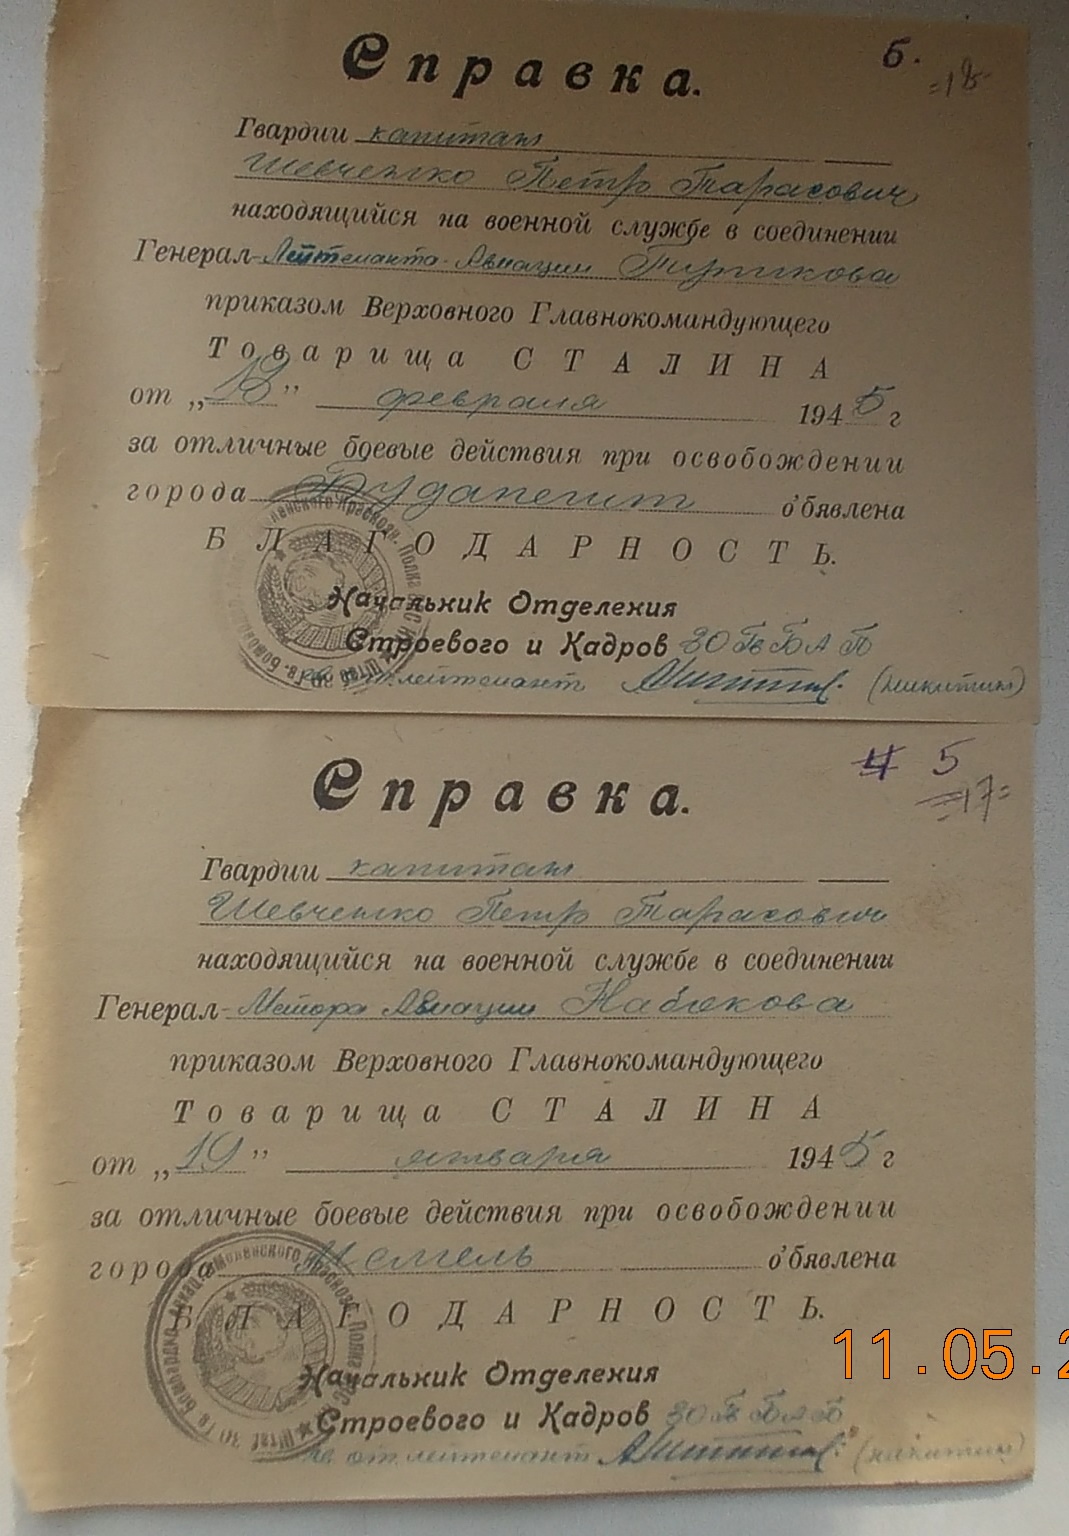 Справка.
б.
=18=
Гвардии капитан
Шевченко Петр Тарасович
находящийся на военной службе в соединении
Генерал-Лейтенанта-Авиации Тупикова
приказом Верховного Главнокомандующего
Товарища СТАЛИНА
от „13” февраля 1945 г
за отличные боевые действия при освобождении
города Будапешт о'бявлена
БЛАГОДАРНОСТЬ.
Начальник Отделения
Строевого и Кадров 30 Гв БАП
гв. ст. лейтенант (никитин)
Справка.
4 5
=17=
Гвардии капитан
Шевченко Петр Тарасович
находящийся на военной службе в соединении
Генерал-Майора Авиации
приказом Верховного Главнокомандующего
Товарища СТАЛИНА
от „19” января 1945 г
за отличные боевые действия при освобождении
города о'бявлена
БЛАГОДАРНОСТЬ.
Начальник Отделения
Строевого и Кадров 30 Гв БАП
гв ст. лейтенант (никитин)
11.05.2